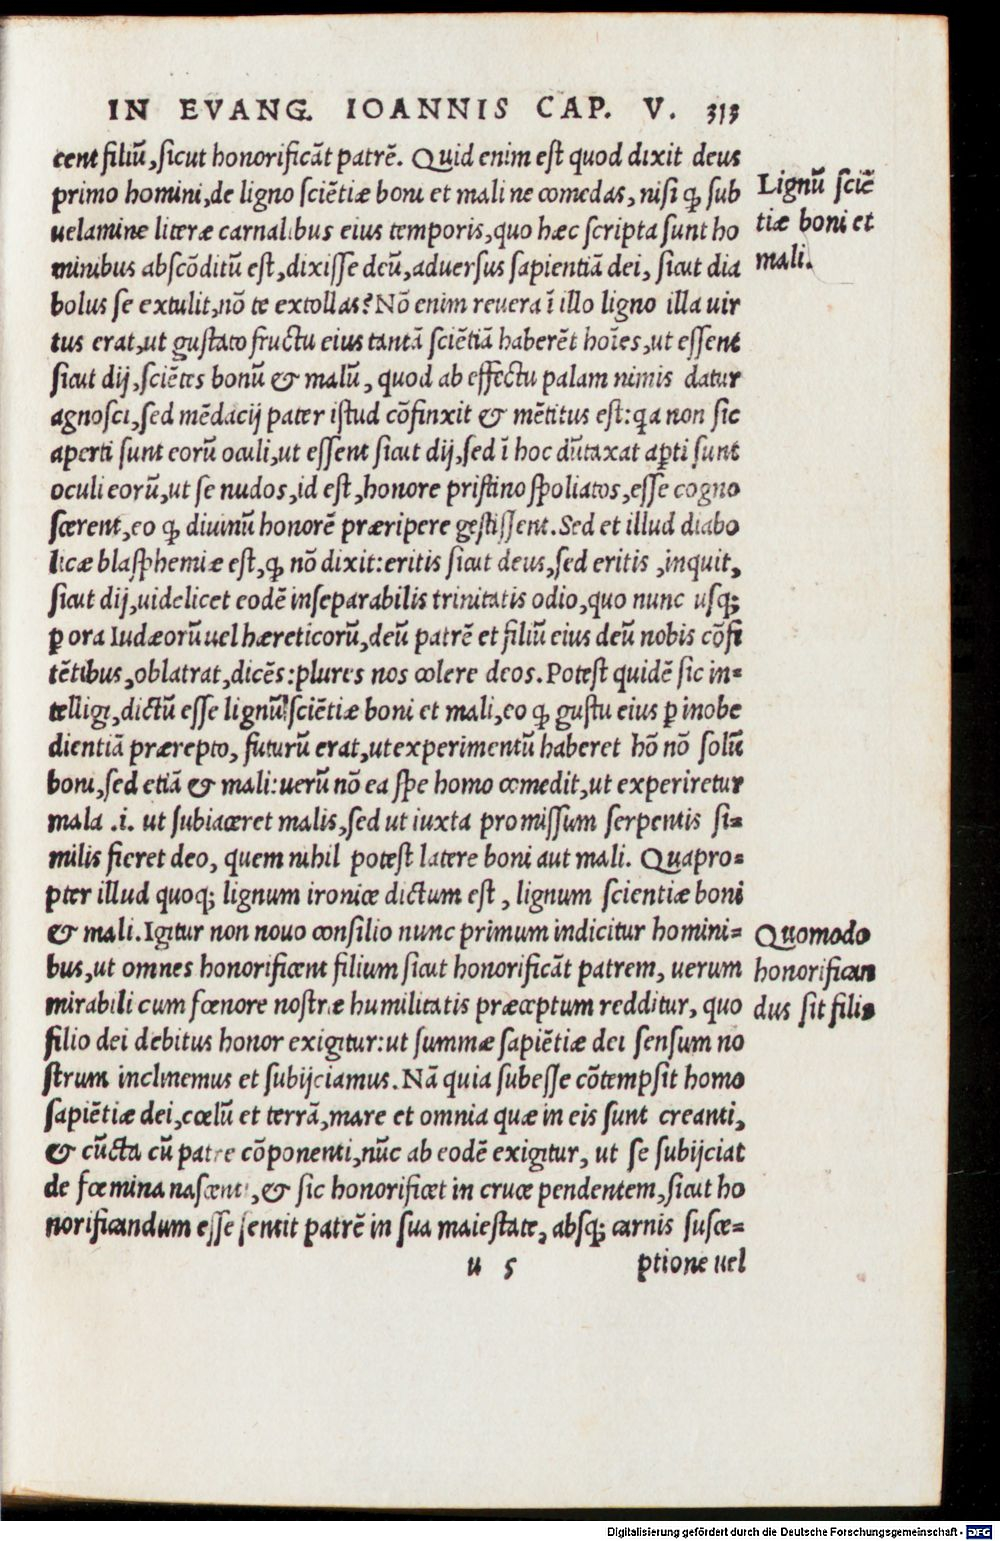 IN EVANG. IOANNIS CAP. V. 313
cent filiũ, sicut honorificãt patrẽ. Quid enim est quod dixit deus
primo homini, de ligno sciẽtiæ boni et mali ne comedas, nisi ꝙ sub
uelamine literæ carnalibus eius temporis, quo hæc scripta sunt ho
minibus abscõditũ est, dixisse deũ, aduersus sapientiã dei, sicut dia
bolus se extulit, nõ te extollas? Nõ enim reuera ĩ illo ligno illa uir
tus erat, ut gustato fructu eius tantã sciẽtiã haberẽt hoĩes, ut essent
sicut dij, sciẽtes bonũ & malũ, quod ab effectu palam nimis datur
agnosci, sed mẽdacij pater istud cõfinxit & mẽtitus est: qa non sic
aperti sunt eorũ oculi, ut essent sicut dij, sed ĩ hoc dũtaxat aꝑti sunt
oculi eorũ, ut se nudos, id est, honore pristino spoliatos, esse cogno
scerent, eo ꝙ diuinũ honorẽ præripere gestissent. Sed et illud diabo
licæ blasphemiæ est, ꝙ nõ dixit: eritis sicut deus, sed eritis, inquit,
sicut dij, uidelicet eodẽ inseparabilis trinitatis odio, quo nunc usqꝫ
ꝑ ora Iudæorũ uel hæreticorũ, deũ patrẽ et filiũ eius deũ nobis cõfi
tẽtibus, oblatrat, dicẽs: plures nos colere deos. Potest quidẽ sic in=
telligi, dictũ esse lignũ sciẽtiæ boni et mali, eo ꝙ gustu eius ꝑ inobe
dientiã prærepto, futurũ erat, ut experimentũ haberet hõ nõ solũ
boni, sed etiã & mali: uerũ nõ ea spe homo comedit, ut experiretur
mala .i. ut subiaceret malis, sed ut iuxta promissum serpentis si=
milis fieret deo, quem nihil potest latere boni aut mali. Quapro=
pter illud quoqꝫ lignum ironice dictum est, lignum scientiæ boni
& mali. Igitur non nouo consilio nunc primum indicitur homini=
bus, ut omnes honorificent filium sicut honorificãt patrem, uerum
mirabili cum fœnore nostræ humilitatis præceptum redditur, quo
filio dei debitus honor exigitur: ut summæ sapiẽtiæ dei sensum no
strum inclinemus et subijciamus. Nã quia subesse cõtempsit homo
sapiẽtiæ dei, cœlũ et terrã, mare et omnia quæ in eis sunt creanti,
& cũcta cũ patre cõponenti, nũc ab eodẽ exigitur, ut se subijciat
de fœmina nascenti, & sic honorificet in cruce pendentem, sicut ho
norificandum esse sentit patrẽ in sua maiestate, absqꝫ carnis susce=
u 5 ptione uel
Lignũ sciẽ
tiæ boni et
mali.
Quomodo
honorifican
dus sit filiꝰ
Digitalisierung gefördert durch die Deutsche Forschungsgemeinschaft - DFG